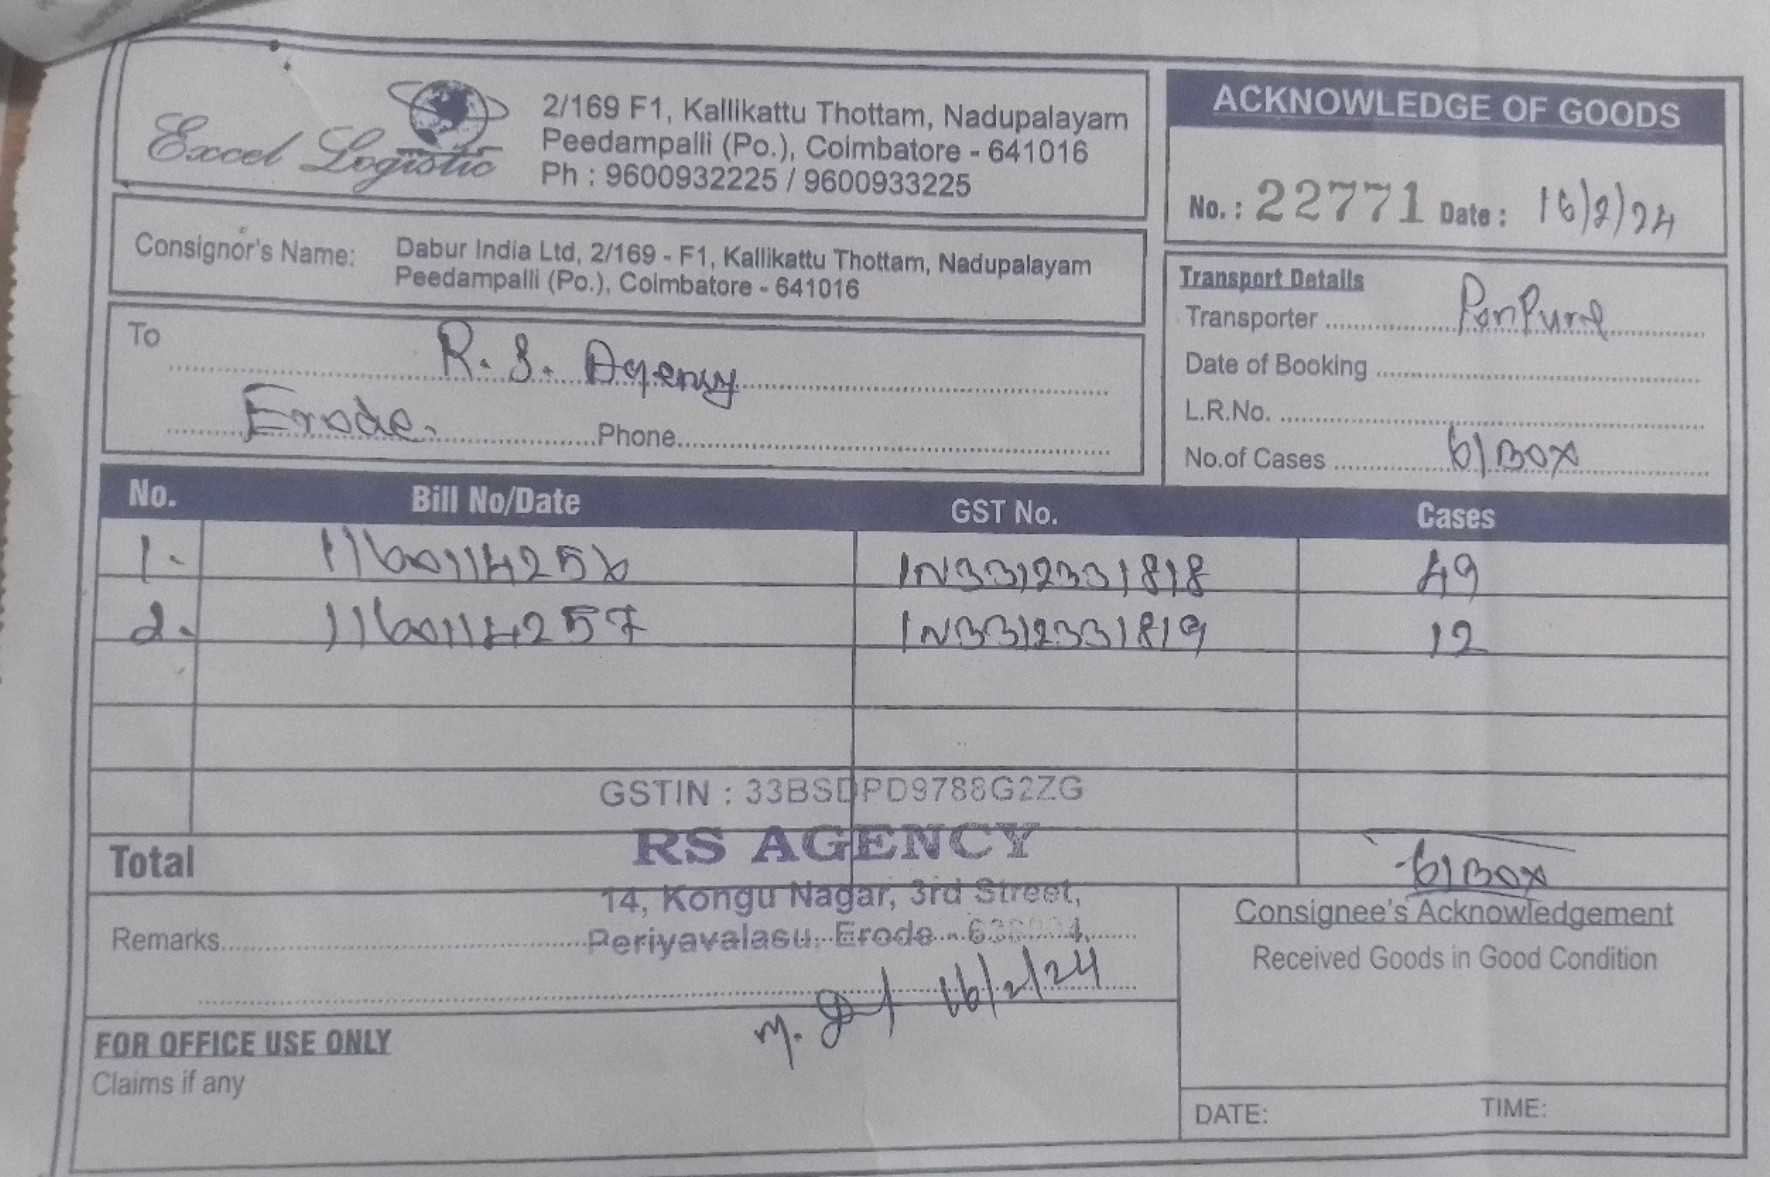 Excel Logistic
2/169 F1, Kallikattu Thottam, Nadupalayam
Peedampalli (Po.), Coimbatore - 641016
Ph : 9600932225 / 9600933225
ACKNOWLEDGE OF GOODS
No. : 22771 Date : 16/2/24
Consignor's Name: Dabur India Ltd, 2/169 - F1, Kallikattu Thottam, Nadupalayam
Peedampalli (Po.), Coimbatore - 641016
Transport Details
Transporter
Date of Booking
L.R.No.
No.of Cases 61 Box
To R. S. Agency
Erode. Phone
No. Bill No/Date GST No. Cases
1. 1160114256 IN3312331818 49
2. 1160114257 IN3312331819 12
GSTIN : 33BSDPD9788G2ZG
RS AGENCY
14, Kongu Nagar, 3rd Street,
Periyavalasu, Erode -
Total 61 Box
Remarks
16/2/24
Consignee's Acknowledgement
Received Goods in Good Condition
FOR OFFICE USE ONLY
Claims if any
DATE: TIME: